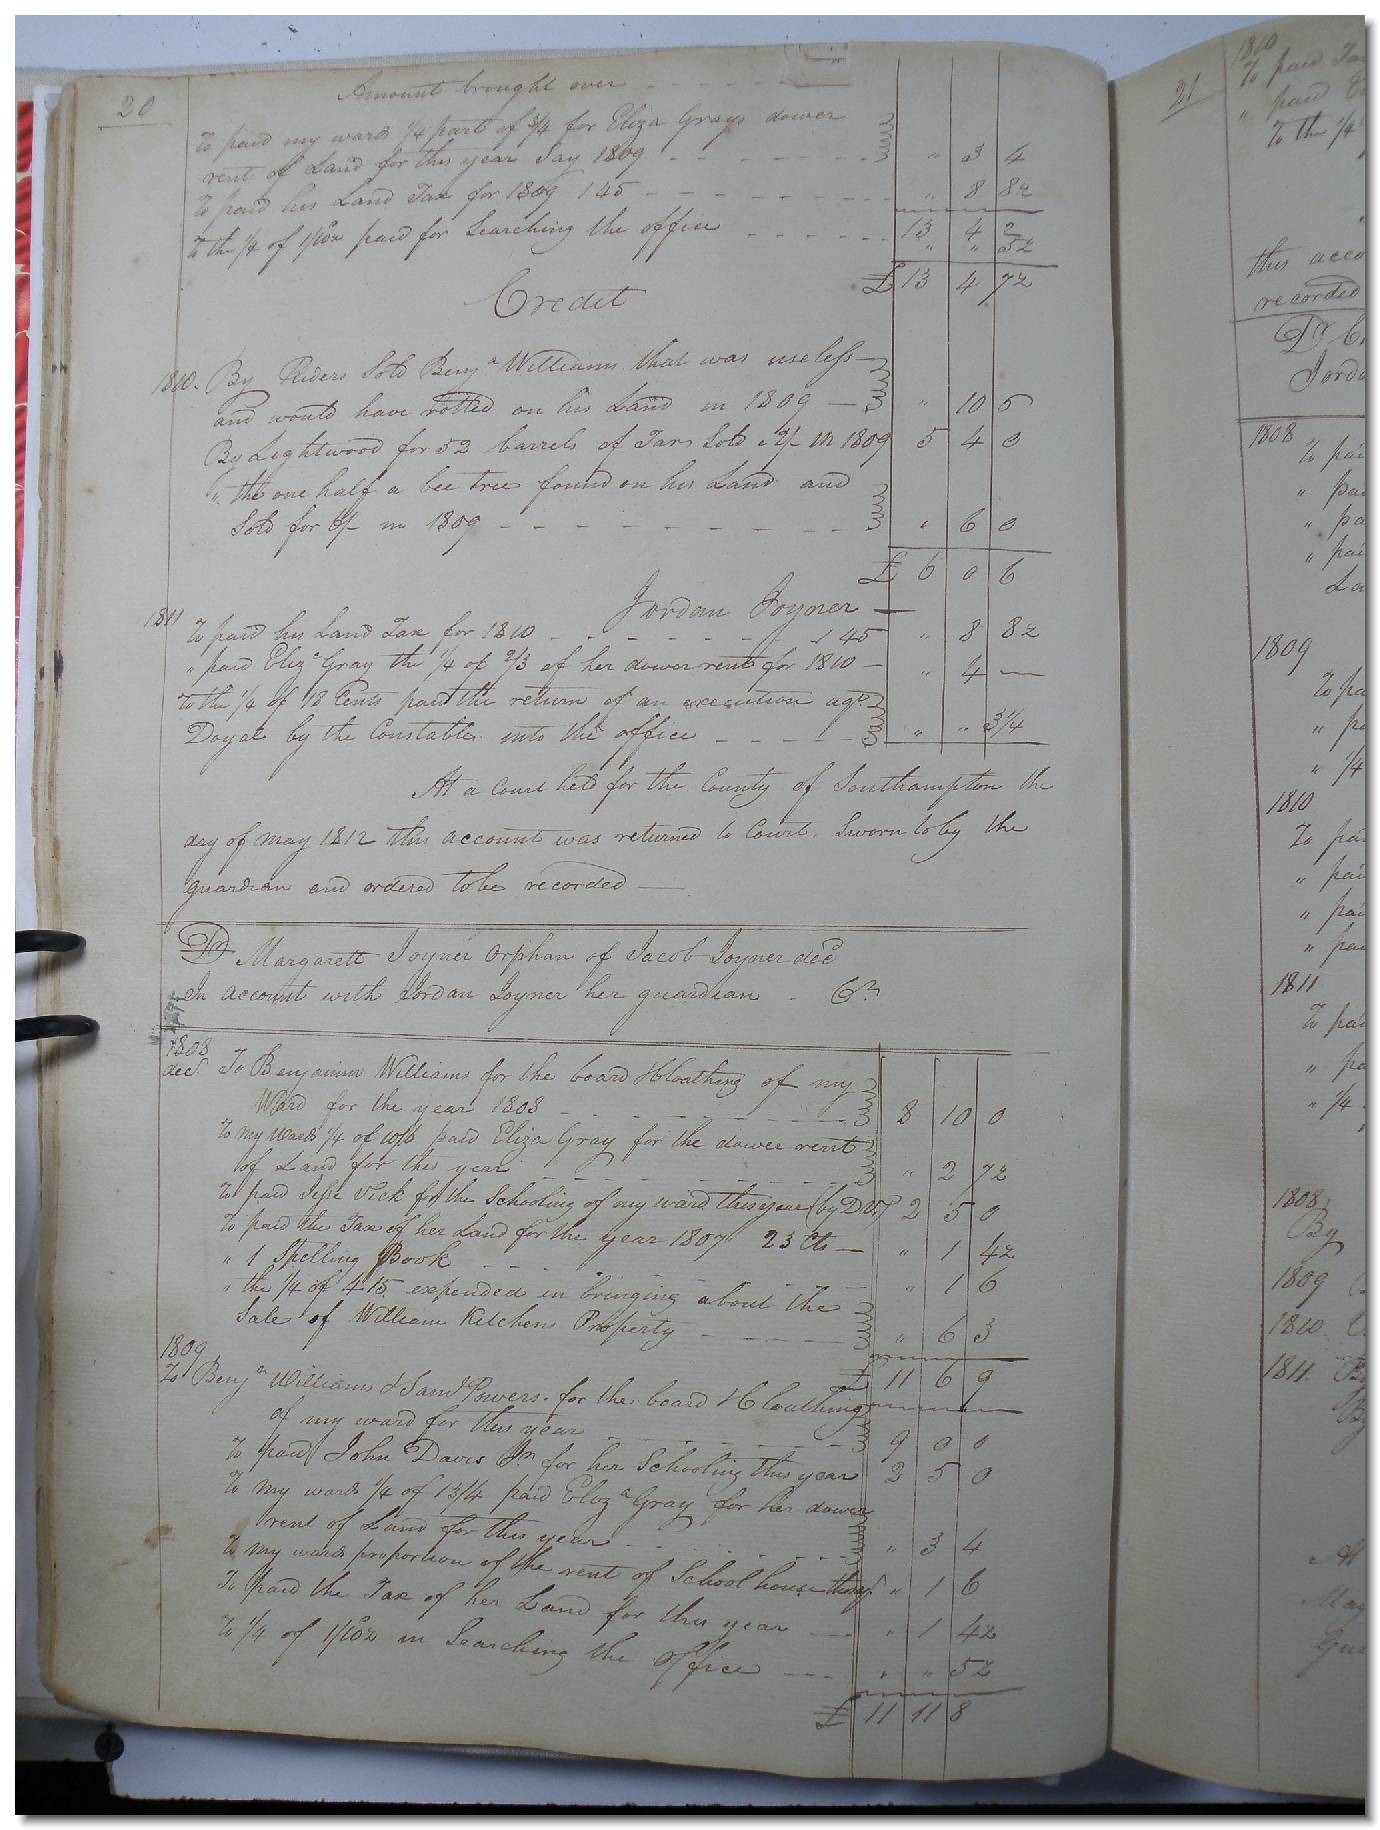 20
Amount brought over - - - - -
To paid my wards 1/4 part of 3/4 for Eliza Grays dower
rent of Land for this year Say 1809 - - - - - " 3 4
To paid his Land Tax for 1809 145 - - - - - " 8 8 1/2
13 4 2
To the 1/4 of 1/10 1/2 paid for Searching the office - - - - " " 5 1/2
£ 13 4 7 1/2
Credit
1810. By Riders Sold Benja Williams that was useless
and would have rotted on his Land in 1809 — " 10 6
By Lightwood for 52 barrels of Tar Sold @ 2/- in 1809 5 4 0
" the one half a bee tree found on his Land and
Sold for 6/- in 1809 - - - - - " 6 0
£ 6 0 6
Jordan Joyner —
1811
To paid his Land Tax for 1810 - - - - - 145 " 8 8 1/2
" paid Eliza Gray the 1/4 of 2/3 of her dower rent for 1810 — " 4 —
To the 1/4 of 18 Cents paid the return of an execution agt
Doyal by the Constable into the office - - - - - " " 3 1/4
At a Court held for the County of Southampton the
day of may 1812 this account was returned to Court. Sworn to by the
guardian and ordered to be recorded —
Dr Margarett Joyner orphan of Jacob Joyner decd
In account with Jordan Joyner her guardian - Cr
1808
decr To Benjamin Williams for the board & Cloathing of my
Ward for the year 1808 - - - - - 8 10 0
To my wards 1/4 of 10/6 paid Eliza Gray for the dower rent
of Land for this year - - - - - " 2 7 1/2
To paid Jesse Vick for the Schooling of my ward this year (by D V) 2 5 0
To paid the Tax of her Land for the year 1807 23 Cts — " 1 4 1/2
" 1 Spelling Book - - - - - " 1 6
" the 1/4 of 4.15. expended in bringing about the
Sale of William Kitchen Property - - - - - " 6 3
£ 11 6 9
1809
To Benja Williams & Saml Powers for the board & Cloathing
of my ward for this year - - - - - 9 0 0
To paid John Davis Jr for her Schooling this year 2 5 0
To my wards 1/4 of 13/4 paid Eliza Gray for her dower
rent of Land for this year - - - - - " 3 4
To my wards proportion of the rent of School house " 1 6
To paid the Tax of her Land for this year - - " 1 4 1/2
To 1/4 of 1/10 1/2 in Searching the office - - - " " 5 1/2
£ 11 11 8
21
1810
To paid
" paid
To the 1/4
this acco
recorded
Dr
Jord
1808
To pai
" pai
" pa
" pai
La
1809
To pa
" pa
" 1/4
1810
To pai
" pai
" pai
" pa
1811
To pai
" pa
" 1/4
1808
By
1809
1810
1811. By
By
At
May
Gua